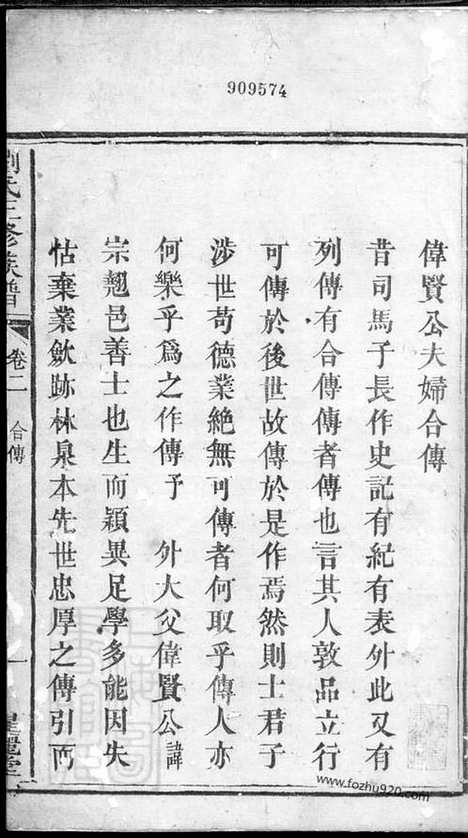 909574
偉賢公夫婦合傳
昔司馬子長作史記有紀有表外此又有
列傳有合傳傳者傳也言其人敦品立行
可傳於後世故傳於是作焉然則士君子
涉世苟德業絶無可傳者何取乎傳人亦
何樂乎爲之作傳予 外大父偉賢公諱
宗翹邑善士也生而穎異足學多能因失
怙棄業歛跡林泉本先世忠厚之傳引而
劉氏三修族譜
卷二 合傳
一
www.fozhu920.com